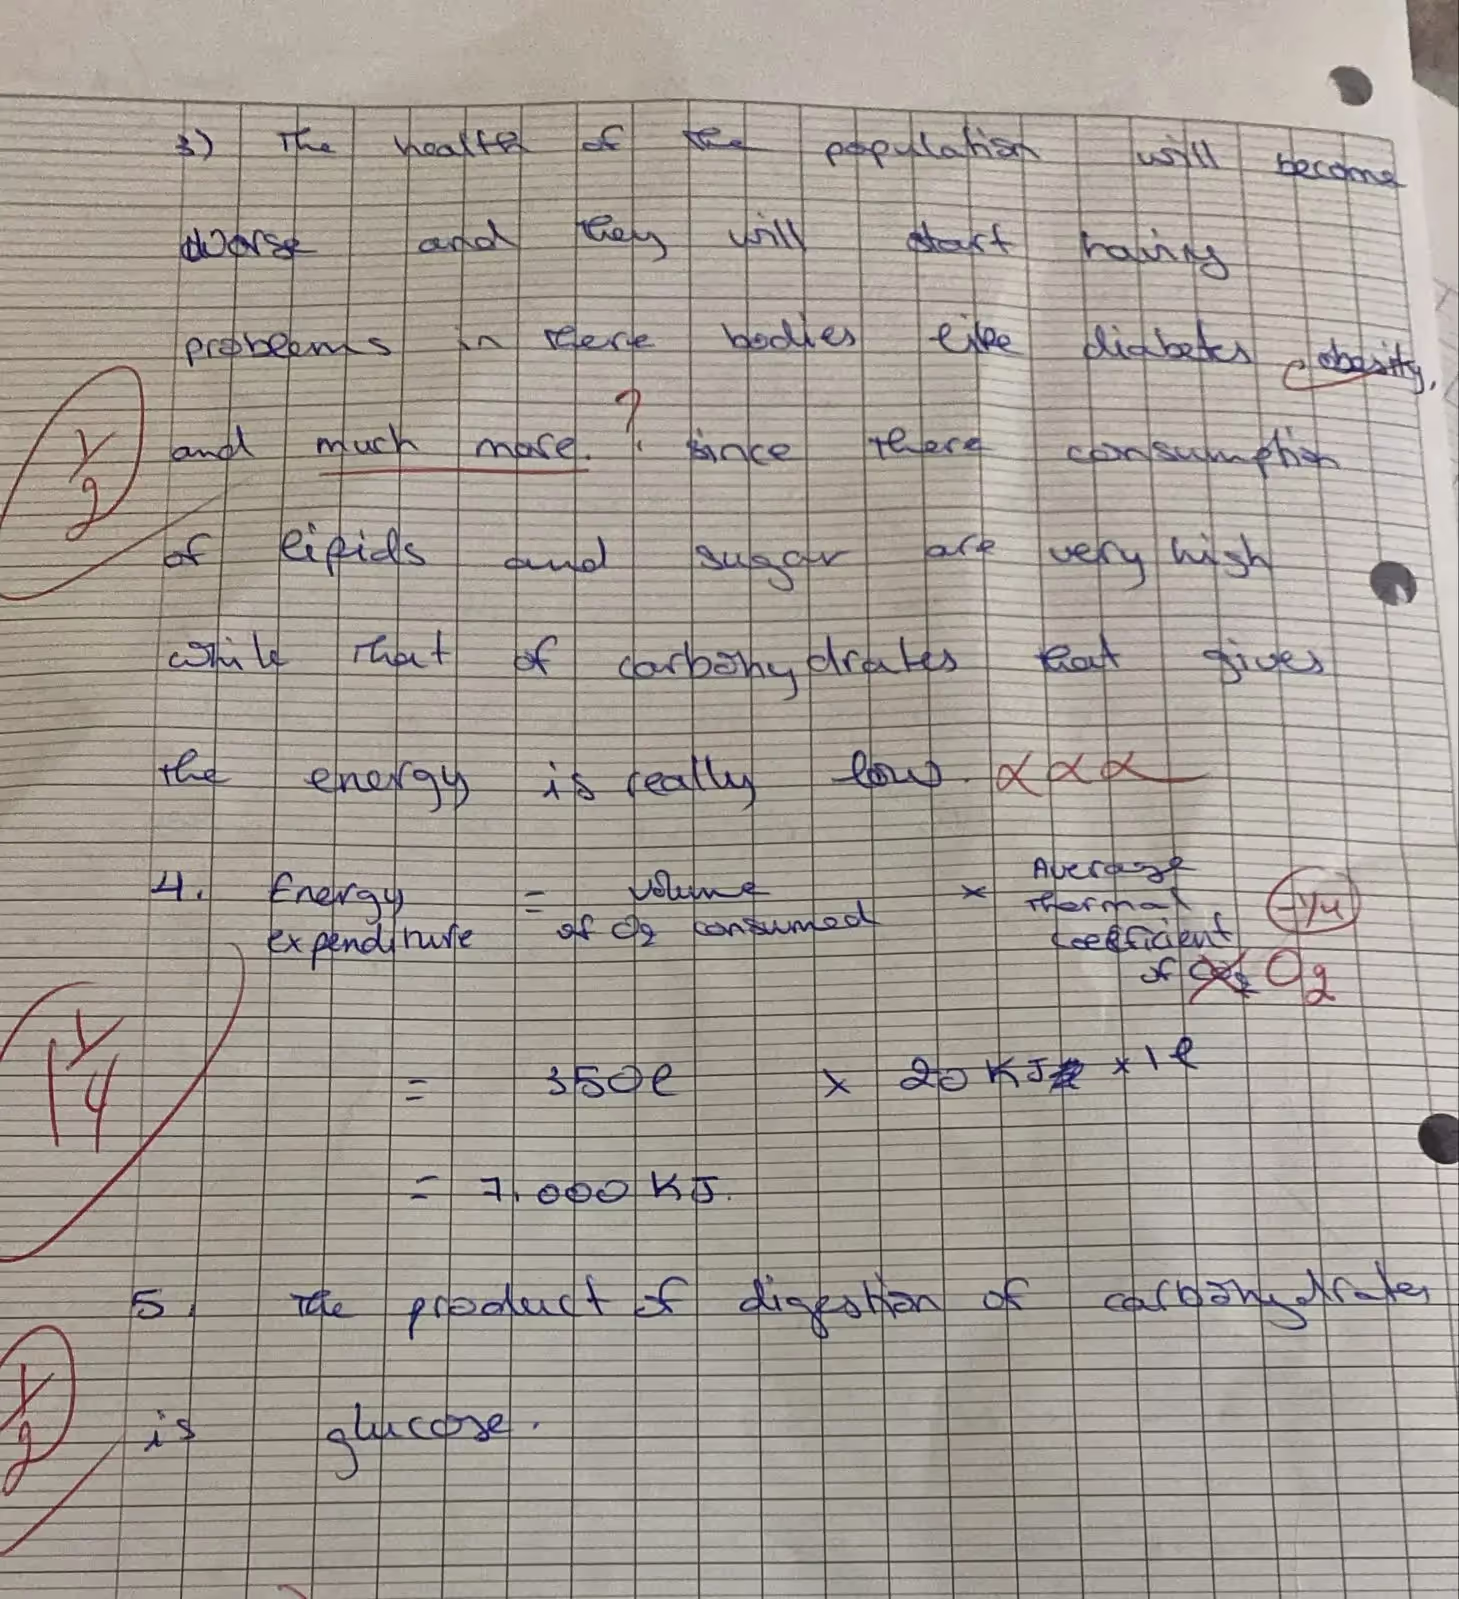 3) The health of the population will become
worse and they will start having
problems in there bodies like diabetes, obesity,
1/2
and much more. ? since there consumption
of lipids and sugar are very high
while that of carbohydrates that gives
the energy is really low.
4. Energy expenditure = volume of O2 consumed × Average thermal coefficient of O2 -1/4
1 1/4
= 350l × 20 KJ × 1l
= 7.000 KJ.
5. The product of digestion of carbohydrates
1/2
is glucose.